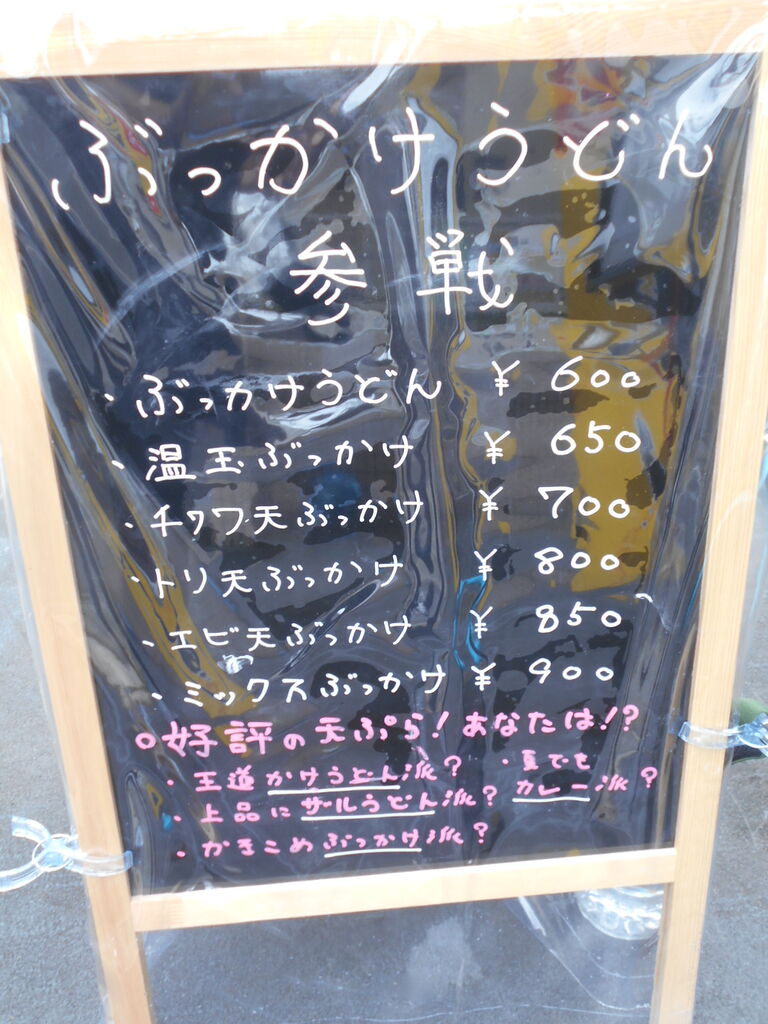 ぶっかけうどん
参戦
・ぶっかけうどん ¥ 600
・温玉ぶっかけ ¥ 650
・チクワ天ぶっかけ ¥ 700
・トリ天ぶっかけ ¥ 800
・エビ天ぶっかけ ¥ 850
・ミックスぶっかけ ¥ 900
○好評の天ぷら!あなたは!?
・王道かけうどん派? ・夏でもカレー派?
・上品にザルうどん派?
・かきこめぶっかけ派?